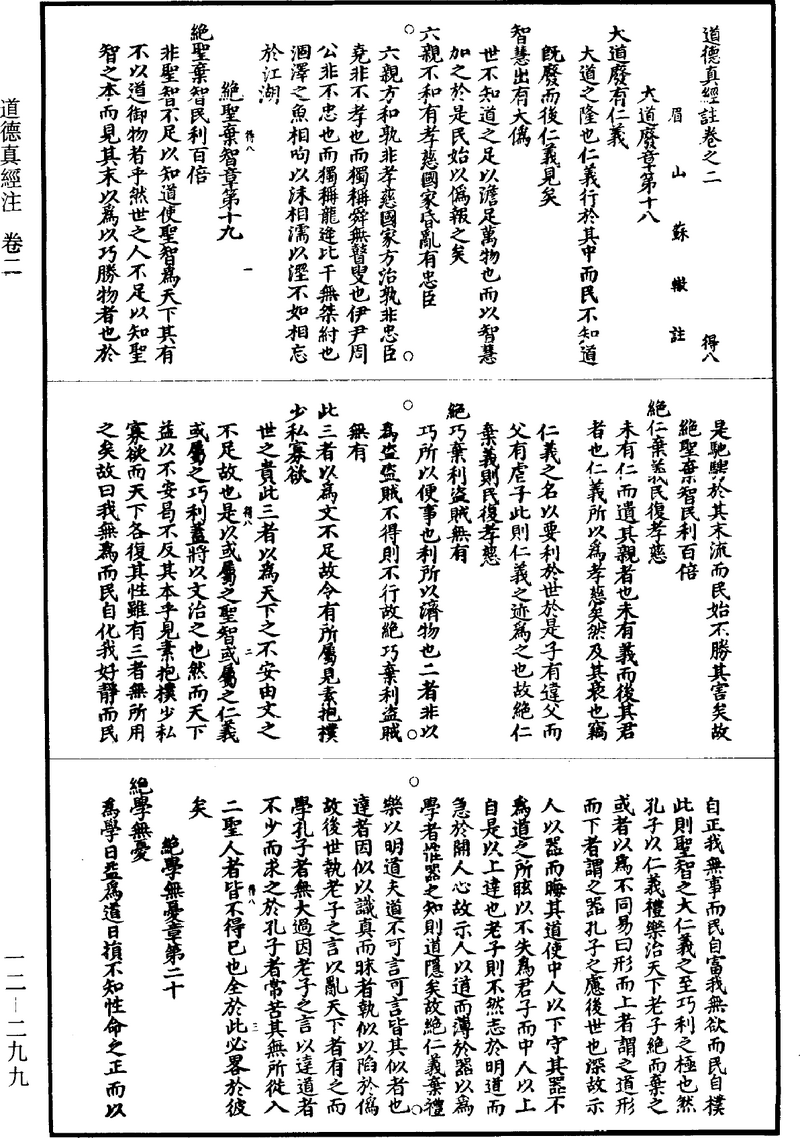 道德真經註卷之二　得八
眉山蘇轍註
大道廢章第十八
大道廢有仁義
大道之隆也仁義行於其中而民不知道
旣廢而後仁義見矣
智慧出有大僞
世不知道之足以澹足萬物也而以智慧
加之於是民始以僞報之矣
六親不和有孝慈國家昏亂有忠臣
六親方和孰非孝慈國家方治孰非忠臣
堯非不孝也而獨稱舜無瞽叟也伊尹周
公非不忠也而獨稱龍逄比干無桀紂也
涸澤之魚相呴以沫相濡以溼不如相忘
於江湖
絕聖棄智章第十九
得八　一
絕聖棄智民利百倍
非聖智不足以知道使聖智爲天下其有
不以道御物者乎然世之人不足以知聖
智之本而見其末以爲以巧勝物者也於
是馳騁於其末流而民始不勝其害矣故
絕聖棄智民利百倍
絕仁棄義民復孝慈
未有仁而遺其親者也未有義而後其君
者也仁義所以爲孝慈矣然及其衰也竊
仁義之名以要利於世於是子有違父而
父有虐子此則仁義之迹爲之也故絕仁
棄義則民復孝慈
絕巧棄利盜賊無有
巧所以便事也利所以濟物也二者非以
爲盜盜賊不得則不行故絕巧棄利盜賊
無有
此三者以爲文不足故令有所屬見素抱樸
少私寡欲
世之貴此三者以爲天下之不安由文之
不足故也是以或屬之聖智或屬之仁義
得八　二
或屬之巧利蓋將以文治之也然而天下
益以不安曷不反其本乎見素抱樸少私
寡欲而天下各復其性雖有三者無所用
之矣故曰我無爲而民自化我好靜而民
自正我無事而民自富我無欲而民自樸
此則聖智之大仁義之至巧利之極也然
孔子以仁義禮樂治天下老子絕而棄之
或者以爲不同易曰形而上者謂之道形
而下者謂之器孔子之慮後世也深故示
人以器而晦其道使中人以下守其器不
爲道之所眩以不失爲君子而中人以上
自是以上達也老子則不然志於明道而
急於開人心故示人以道而薄於器以爲
學者惟器之知則道隱矣故絕仁義棄禮
樂以明道夫道不可言可言皆其似者也
達者因似以識真而昧者執似以陷於僞
故後世執老子之言以亂天下者有之而
學孔子者無大過因老子之言以達道者
不少而求之於孔子者常苦其無所從入
得八　三
二聖人者皆不得已也全於此必畧於彼
矣
絕學無憂章第二十
絕學無憂
爲學日益爲道日損不知性命之正而以
道德真經注　卷二
一二—二九九